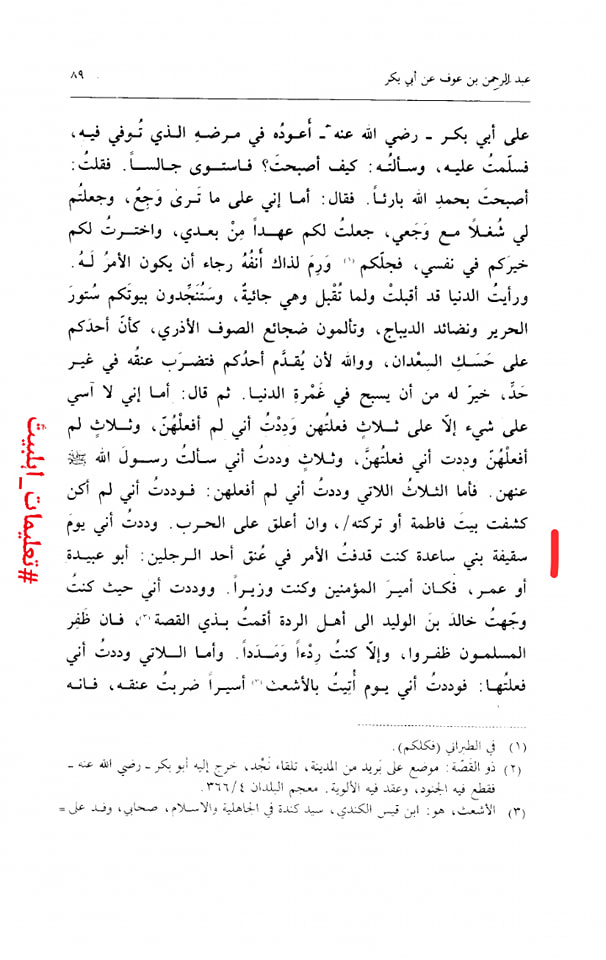 عبد الرحمن بن عوف عن أبي بكر
٨٩
على أبي بكر ـ رضي الله عنه ـ أَعودُه في مرضهِ الذي تُوفي فيه،
فسلّمتُ عليه، وسألتُه: كيف أصبحتَ؟ فاستوى جالساً. فقلتُ:
أصبحتَ بحمدِ الله بارئاً. فقال: أما إني على ما تَرىٰ وَجِعٌ، وجعلتُم
لي شُغلاً مع وَجَعي، جعلتُ لكم عهداً مِنْ بعدي، واخترتُ لكم
خيرَكم في نفسي، فجلّكم (١) وَرِمَ لذاك أنفُهُ رجاء أن يكون الأمرُ لَهُ.
ورأيتُ الدنيا قد أقبلتْ ولما تُقْبل وهي جائيةٌ، وسَتُنَجِّدون بيوتَكم ستُورَ
الحرير ونضائد الديباج، وتألمون ضجائع الصوف الأذري، كأنّ أحدَكم
على حَسَكِ السِعْدان، ووالله لأن يُقدَّم أحدُكم فتضرَب عنقُه في غير
حَدٍّ، خيرٌ له من أن يسبح في غَمْرةِ الدنيا. ثم قال: أما إني لا آسي
على شيء إلّا على ثلاثٍ فعلتُهن وَدِدْتُ أني لم أفعلْهُنّ، وثلاثٍ لم
أفعلْهُنّ وددت أني فعلتُهنَّ، وثلاثٍ وددتُ أني سألتُ رسولَ الله ﷺ
عنهن. فأما الثلاثُ اللاتي وددتُ أني لم أفعلهن: فوددتُ أني لم أكن
كشفت بيتَ فاطمة أو تركته/، وان أعلق على الحرب. وددتُ أني يومَ
سقيفة بني ساعدة كنت قدفتُ الأمر في عُنق أحد الرجلين: أبو عبيدة
أو عمر، فكان أميرَ المؤمنين وكنت وزيراً. ووددت أني حيث كنتُ
وجّهتُ خالدَ بنَ الوليد الى أهل الردة أقمتُ بذي القصة (٢)، فان ظَفِر
المسلمون ظفروا، وإلّا كنتُ رِدْءاً وَمَدَداً. وأما اللاتي وددتُ أني
فعلتُها: فوددتُ أني يوم أُتِيتُ بالأشعث (٣) أسيراً ضربتُ عنقه، فانه
(١) في الطبراني (فكلكم).
(٢) ذو القَصّة: موضع على بَرِيد من المدينة، تلقاء نَجْد، خرج إليه أبو بكر ـ رضي الله عنه ـ
فقطع فيه الجنود، وعقد فيه الألوية. معجم البلدان ٣٦٦/٤.
(٣) الأشعث، هو: ابن قيس الكندي، سيد كندة في الجاهلية والاسلام، صحابي، وفد على =
#تعليمات_ابلبيث